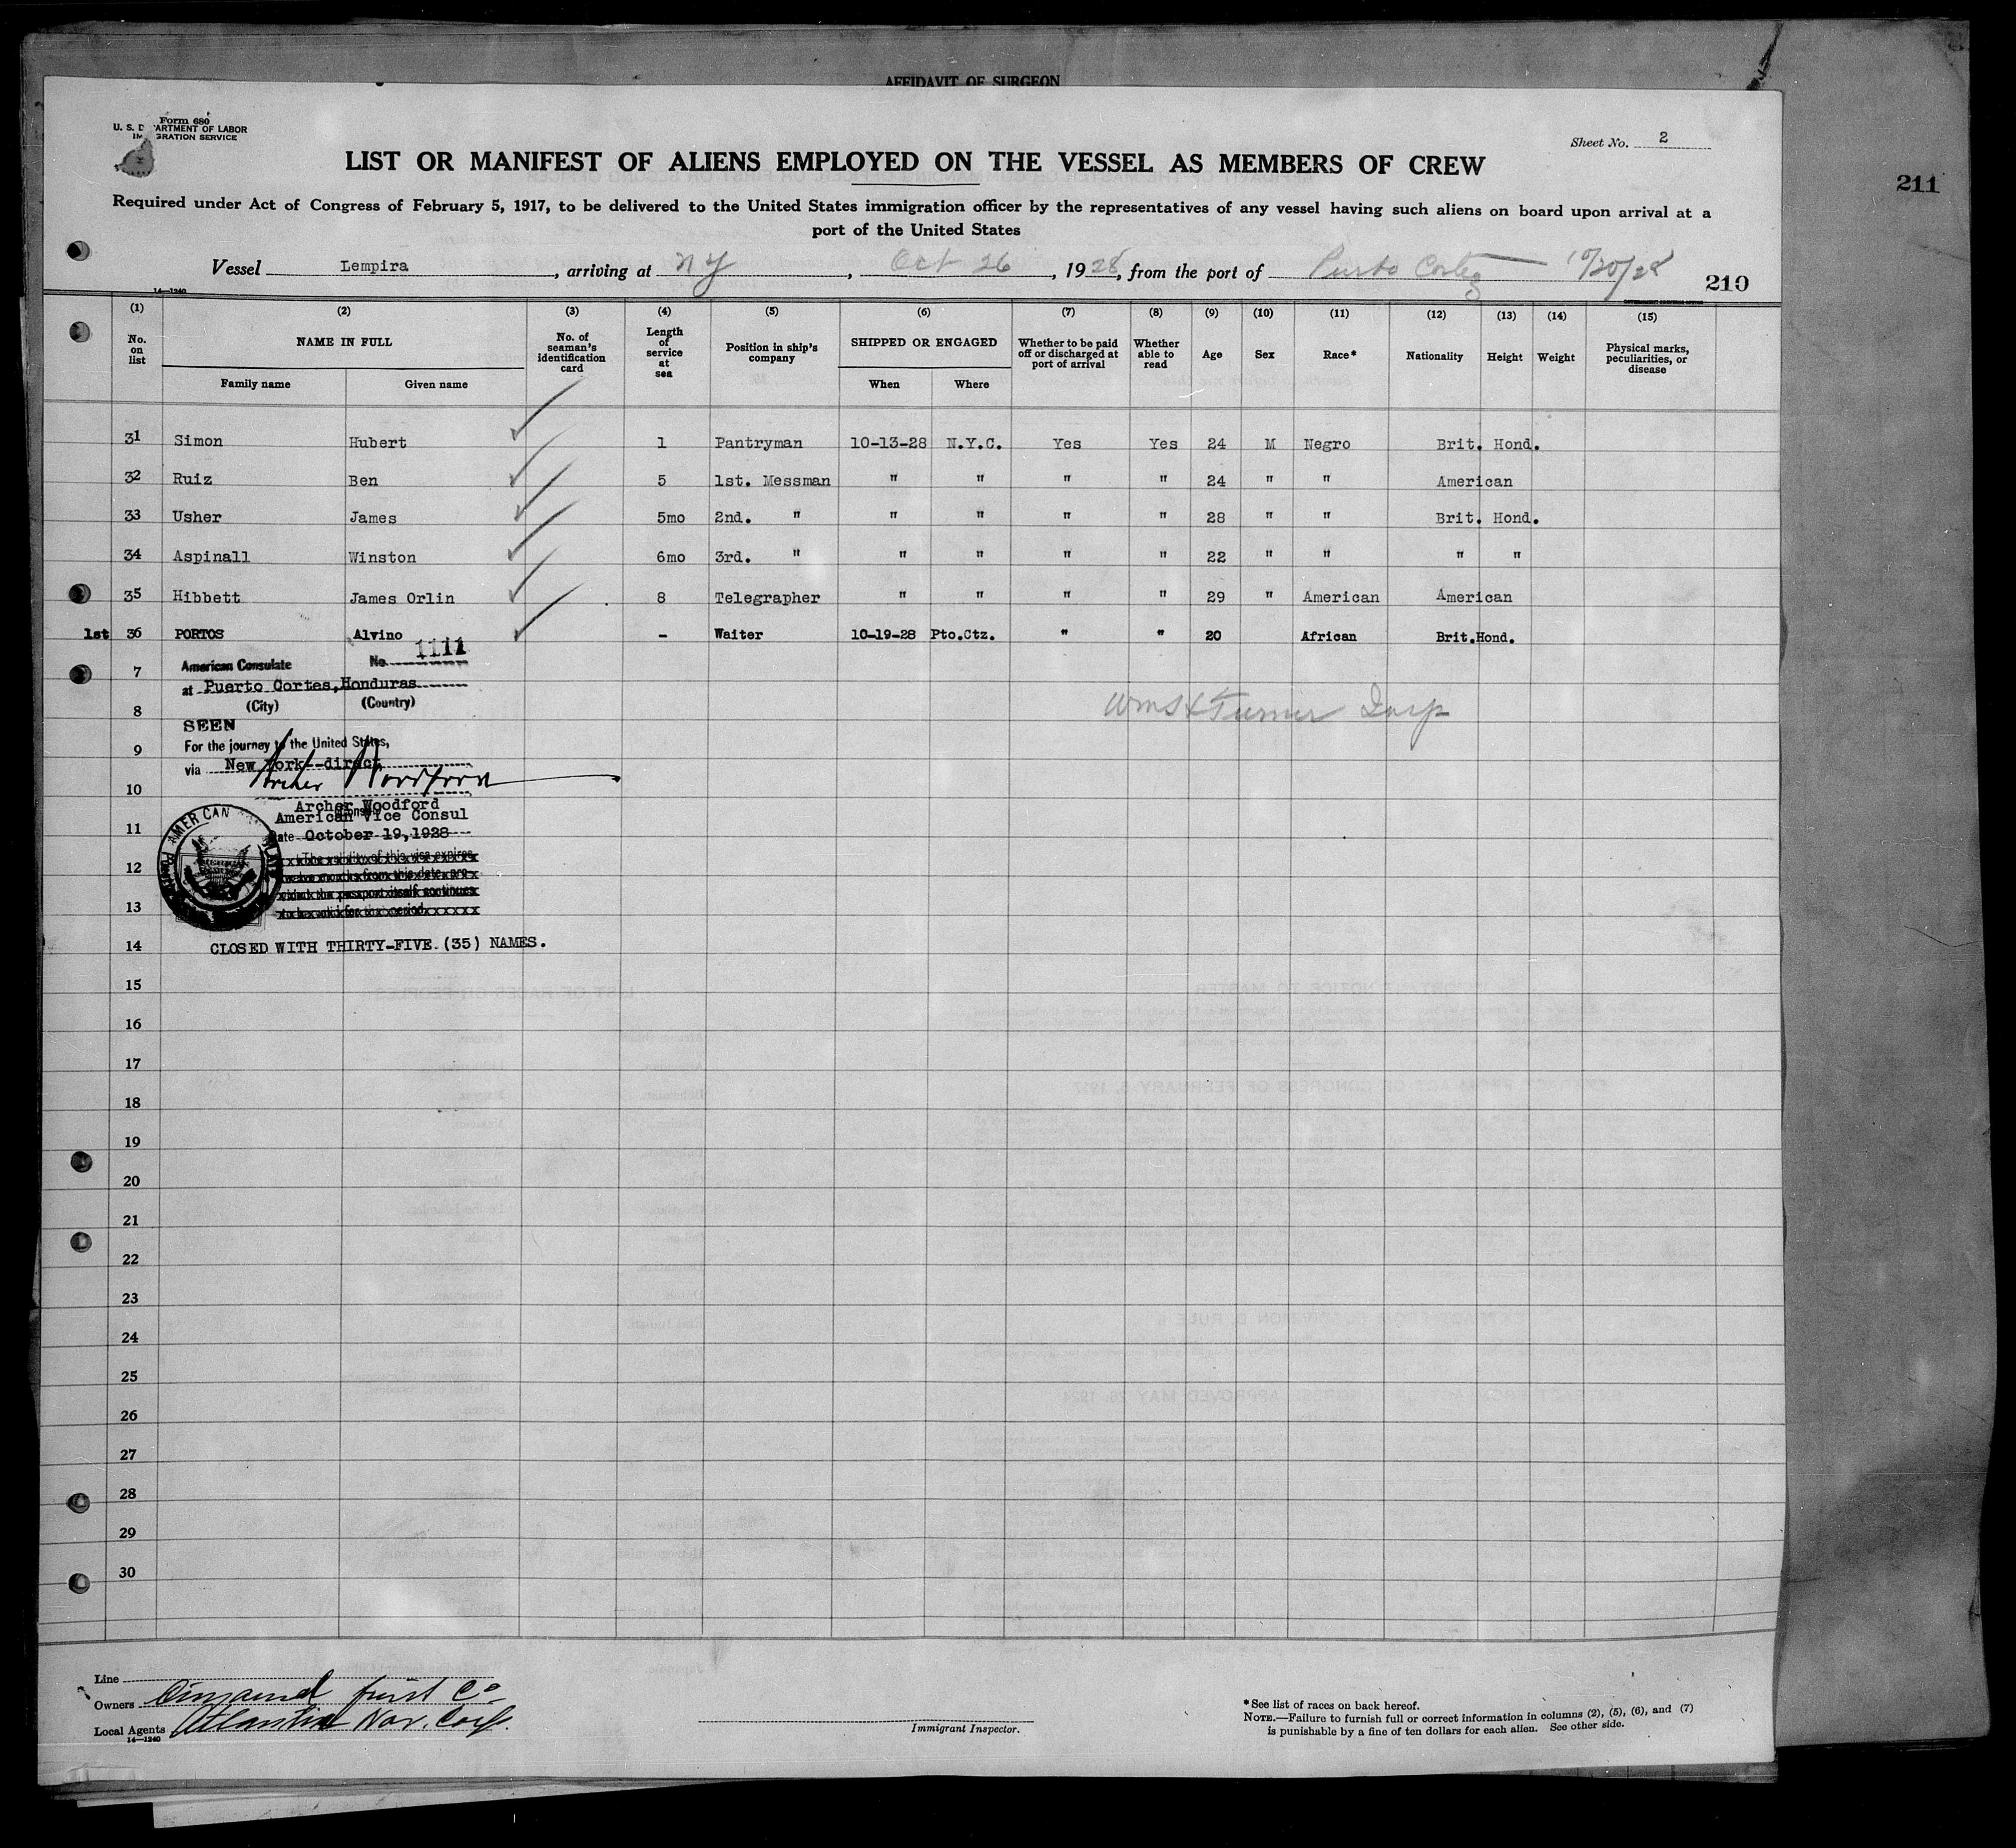 AFFIDAVIT OF SURGEON
Form 680
U. S. DEPARTMENT OF LABOR
IMMIGRATION SERVICE
Sheet No. 2
LIST OR MANIFEST OF ALIENS EMPLOYED ON THE VESSEL AS MEMBERS OF CREW
211
Required under Act of Congress of February 5, 1917, to be delivered to the United States immigration officer by the representatives of any vessel having such aliens on board upon arrival at a
port of the United States
Vessel Lempira, arriving at NY, Oct 26, 1928, from the port of Puerto Cortez 10/20/28
14—1240
210
(1) (2) (3) (4) (5) (6) (7) (8) (9) (10) (11) (12) (13) (14) (15)
No. on list NAME IN FULL No. of seaman's identification card Length of service at sea Position in ship's company SHIPPED OR ENGAGED Whether to be paid off or discharged at port of arrival Whether able to read Age Sex Race* Nationality Height Weight Physical marks, peculiarities, or disease
Family name Given name When Where
31 Simon Hubert 1 Pantryman 10-13-28 N.Y.C. Yes Yes 24 M Negro Brit. Hond.
32 Ruiz Ben 5 1st. Messman " " " " 24 " " American
33 Usher James 5mo 2nd. " " " " " 28 " " Brit. Hond.
34 Aspinall Winston 6mo 3rd. " " " " " 22 " " " "
35 Hibbett James Orlin 8 Telegrapher " " " " 29 " American American
1st 36 PORTOS Alvino - Waiter 10-19-28 Pto.Ctz. " " 20 African Brit.Hond.
7 American Consulate No. 1111
at Puerto Cortes, Honduras
(City) (Country)
8
SEEN
9 For the journey to the United States,
via New York--direct,
Archer Woodford
10
Archer Woodford
American Vice Consul
11 Date October 19,1928
12 The validity of this visa expires
twelve months from this date, pro-
vided the passport itself continues
13 to be valid for that period.
14 CLOSED WITH THIRTY-FIVE (35) NAMES.
15
16
17
18
19
20
21
22
23
24
25
26
27
28
29
30
Line
Owners Cuyamel Fruit Co
Local Agents Atlantic Nav. Corp.
14—1240
Immigrant Inspector.
*See list of races on back hereof.
NOTE.—Failure to furnish full or correct information in columns (2), (5), (6), and (7)
is punishable by a fine of ten dollars for each alien. See other side.